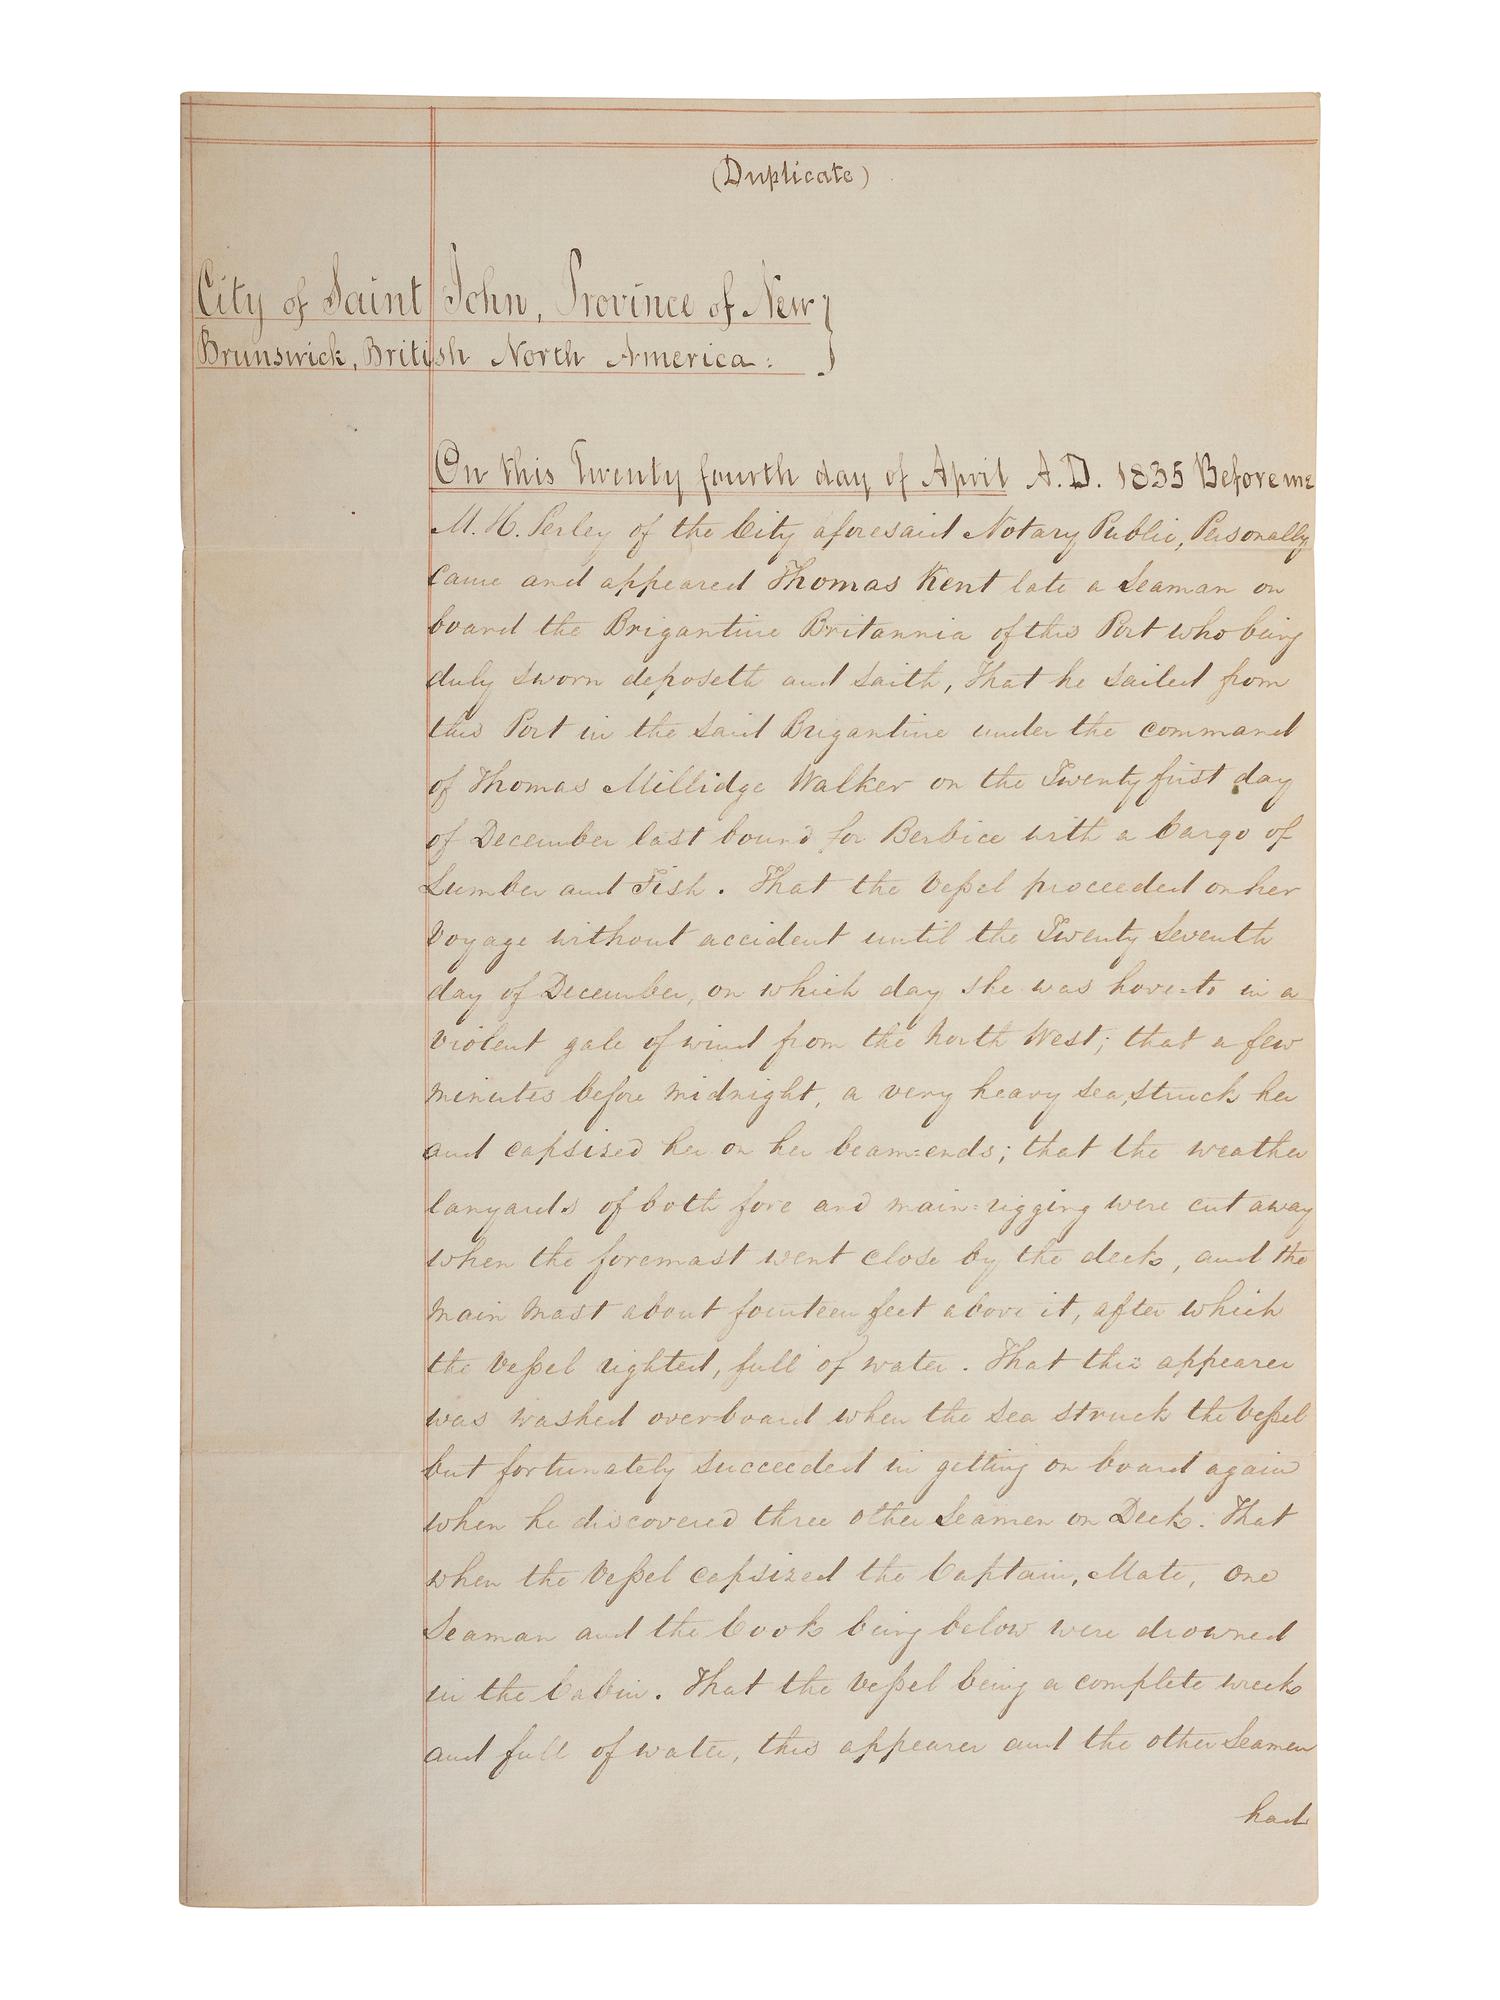 (Duplicate)
City of Saint John, Province of New }
Brunswick, British North America: }
On this Twenty fourth day of April A.D. 1835 Before me
M. H. Perley of the City aforesaid Notary Public, Personally
came and appeared Thomas Kent late a Seaman on
board the Brigantine Britannia of this Port who being
duly sworn deposeth and saith, That he sailed from
this Port in the said Brigantine under the command
of Thomas Millidge Walker on the Twenty first day
of December last bound for Berbice with a Cargo of
Lumber and Fish. That the Veßel proceeded on her
Voyage without accident until the Twenty Seventh
day of December, on which day she was hove=to in a
violent gale of wind from the North West; that a few
minutes before midnight, a very heavy sea, struck her
and capsised her on her beam=ends; that the weather
lanyards of both fore and main=rigging were cut away
when the foremast went close by the deck, and the
Main Mast about fourteen feet above it, after which
the Veßel righted, full of water. That this appearer
was washed overboard when the sea struck the Veßel
but fortunately succeeded in getting on board again
when he discovered three other Seamen on Deck. That
when the Veßel capsized the Captain, Mate, one
Seaman and the Cook being below were drowned
in the Cabin. That the Veßel being a complete wreck
and full of water, this appearer and the other Seamen
had